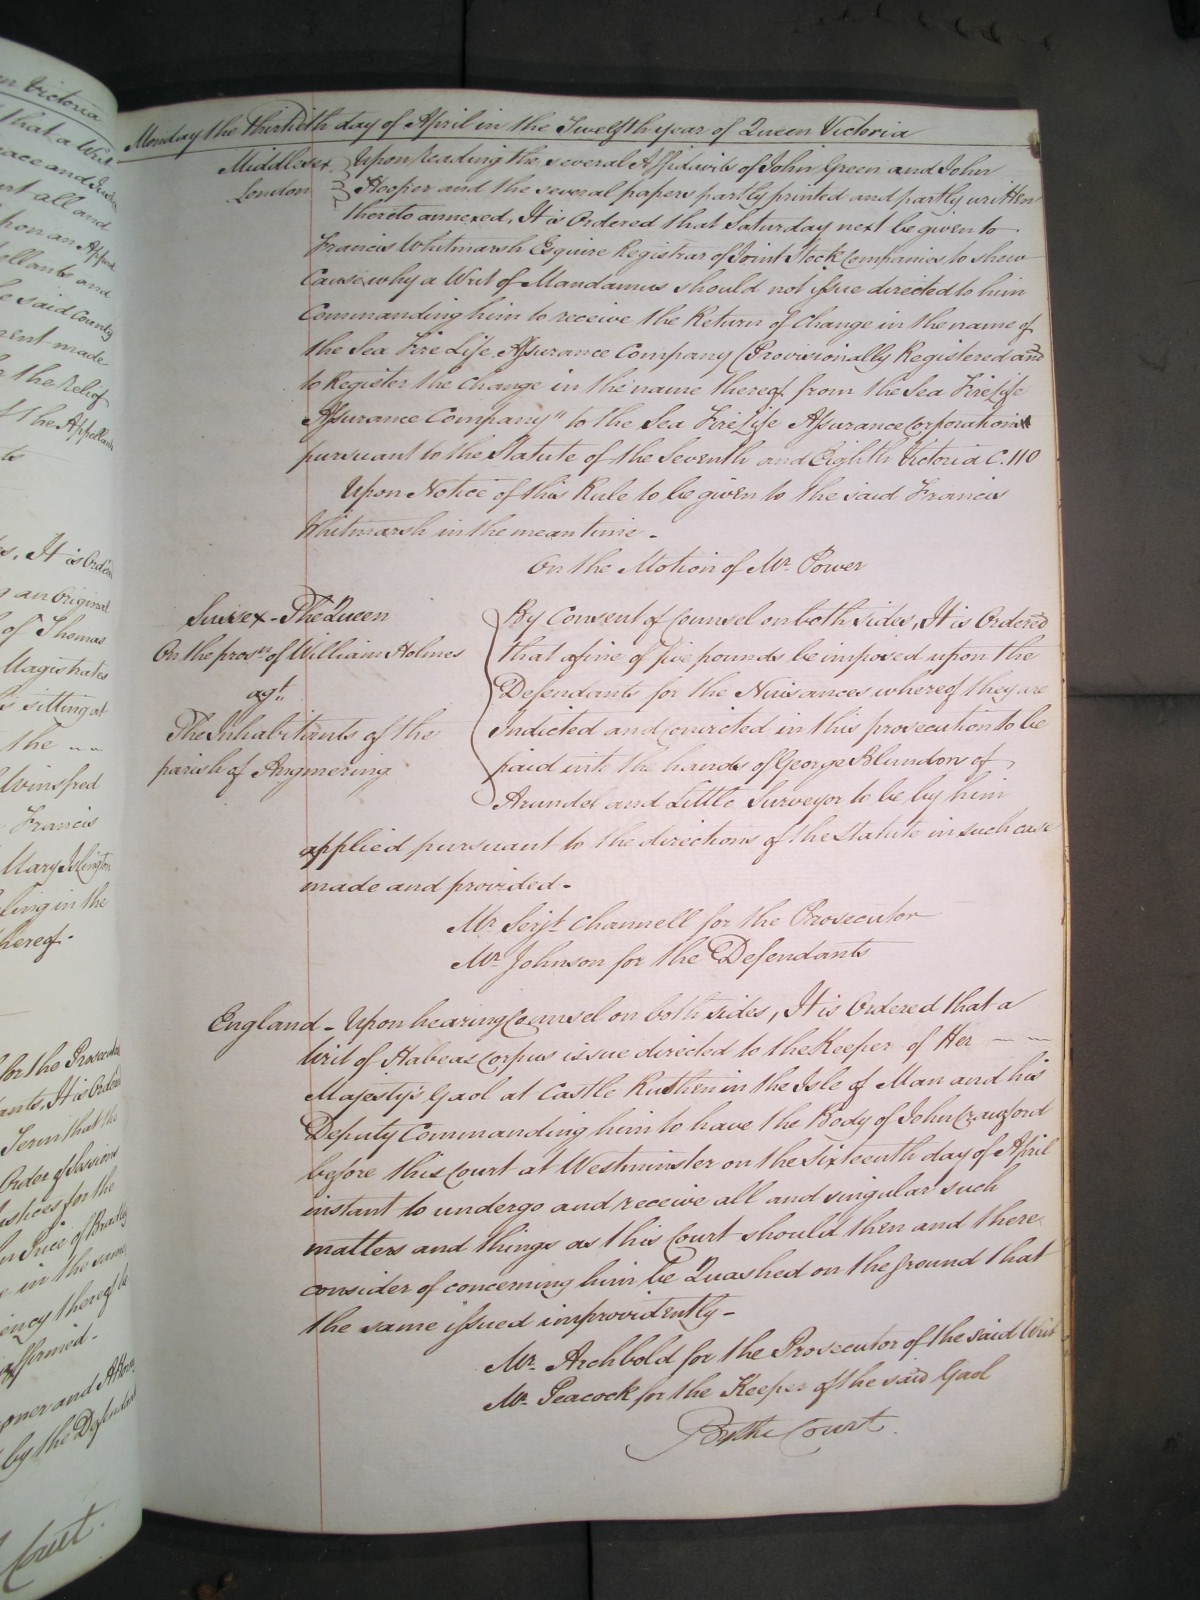 Monday the Thirtieth day of April in the Twelfth year of Queen Victoria
Middlesex } Upon reading the several Affidavits of John Green and John
London } Hooper and the several papers partly printed and partly written
thereto annexed, It is Ordered that Saturday next be given to
Francis Whitmarsh Esquire Registrar of Joint Stock Companies to shew
Cause why a Writ of Mandamus should not issue directed to him
Commanding him to receive the Return of Change in the name of
the Sea Fire Life Assurance Company (Provisionally Registered and
to Register the Change in the name thereof from the Sea Fire Life
Assurance Company" to the Sea Fire Life Assurance Corporation
pursuant to the Statute of the Seventh and Eighth Victoria C. 110
Upon Notice of this Rule to be given to the said Francis
Whitmarsh in the mean time -
On the Motion of Mr. Power
Sussex - The Queen
On the prosn. of William Holmes
agt.
The Inhabitants of the
parish of Angmering
By Consent of Counsel on both sides, It is Ordered
that a fine of five pounds be imposed upon the
Defendants for the Nuisances whereof they are
Indicted and Convicted in this prosecution to be
paid into the hands of George Blundon of
Arundel and Little Surveyor to be by him
applied pursuant to the directions of the Statute in such case
made and provided -
Mr. Serjt. Channell for the Prosecutor
Mr. Johnson for the Defendants
England - Upon hearing Counsel on both sides, It is Ordered that a
Writ of Habeas Corpus issue directed to the Keeper of Her
Majesty's Gaol at Castle Rushen in the Isle of Man and his
Deputy Commanding him to have the Body of John Crawford
before this Court at Westminster on the Sixteenth day of April
instant to undergo and receive all and singular such
matters and things as this Court should then and there
consider of concerning him be Quashed on the ground that
the same issued improvidently -
Mr. Archbold for the Prosecutor of the said Writ
Mr. Peacock for the Keeper of the said Gaol
By the Court.